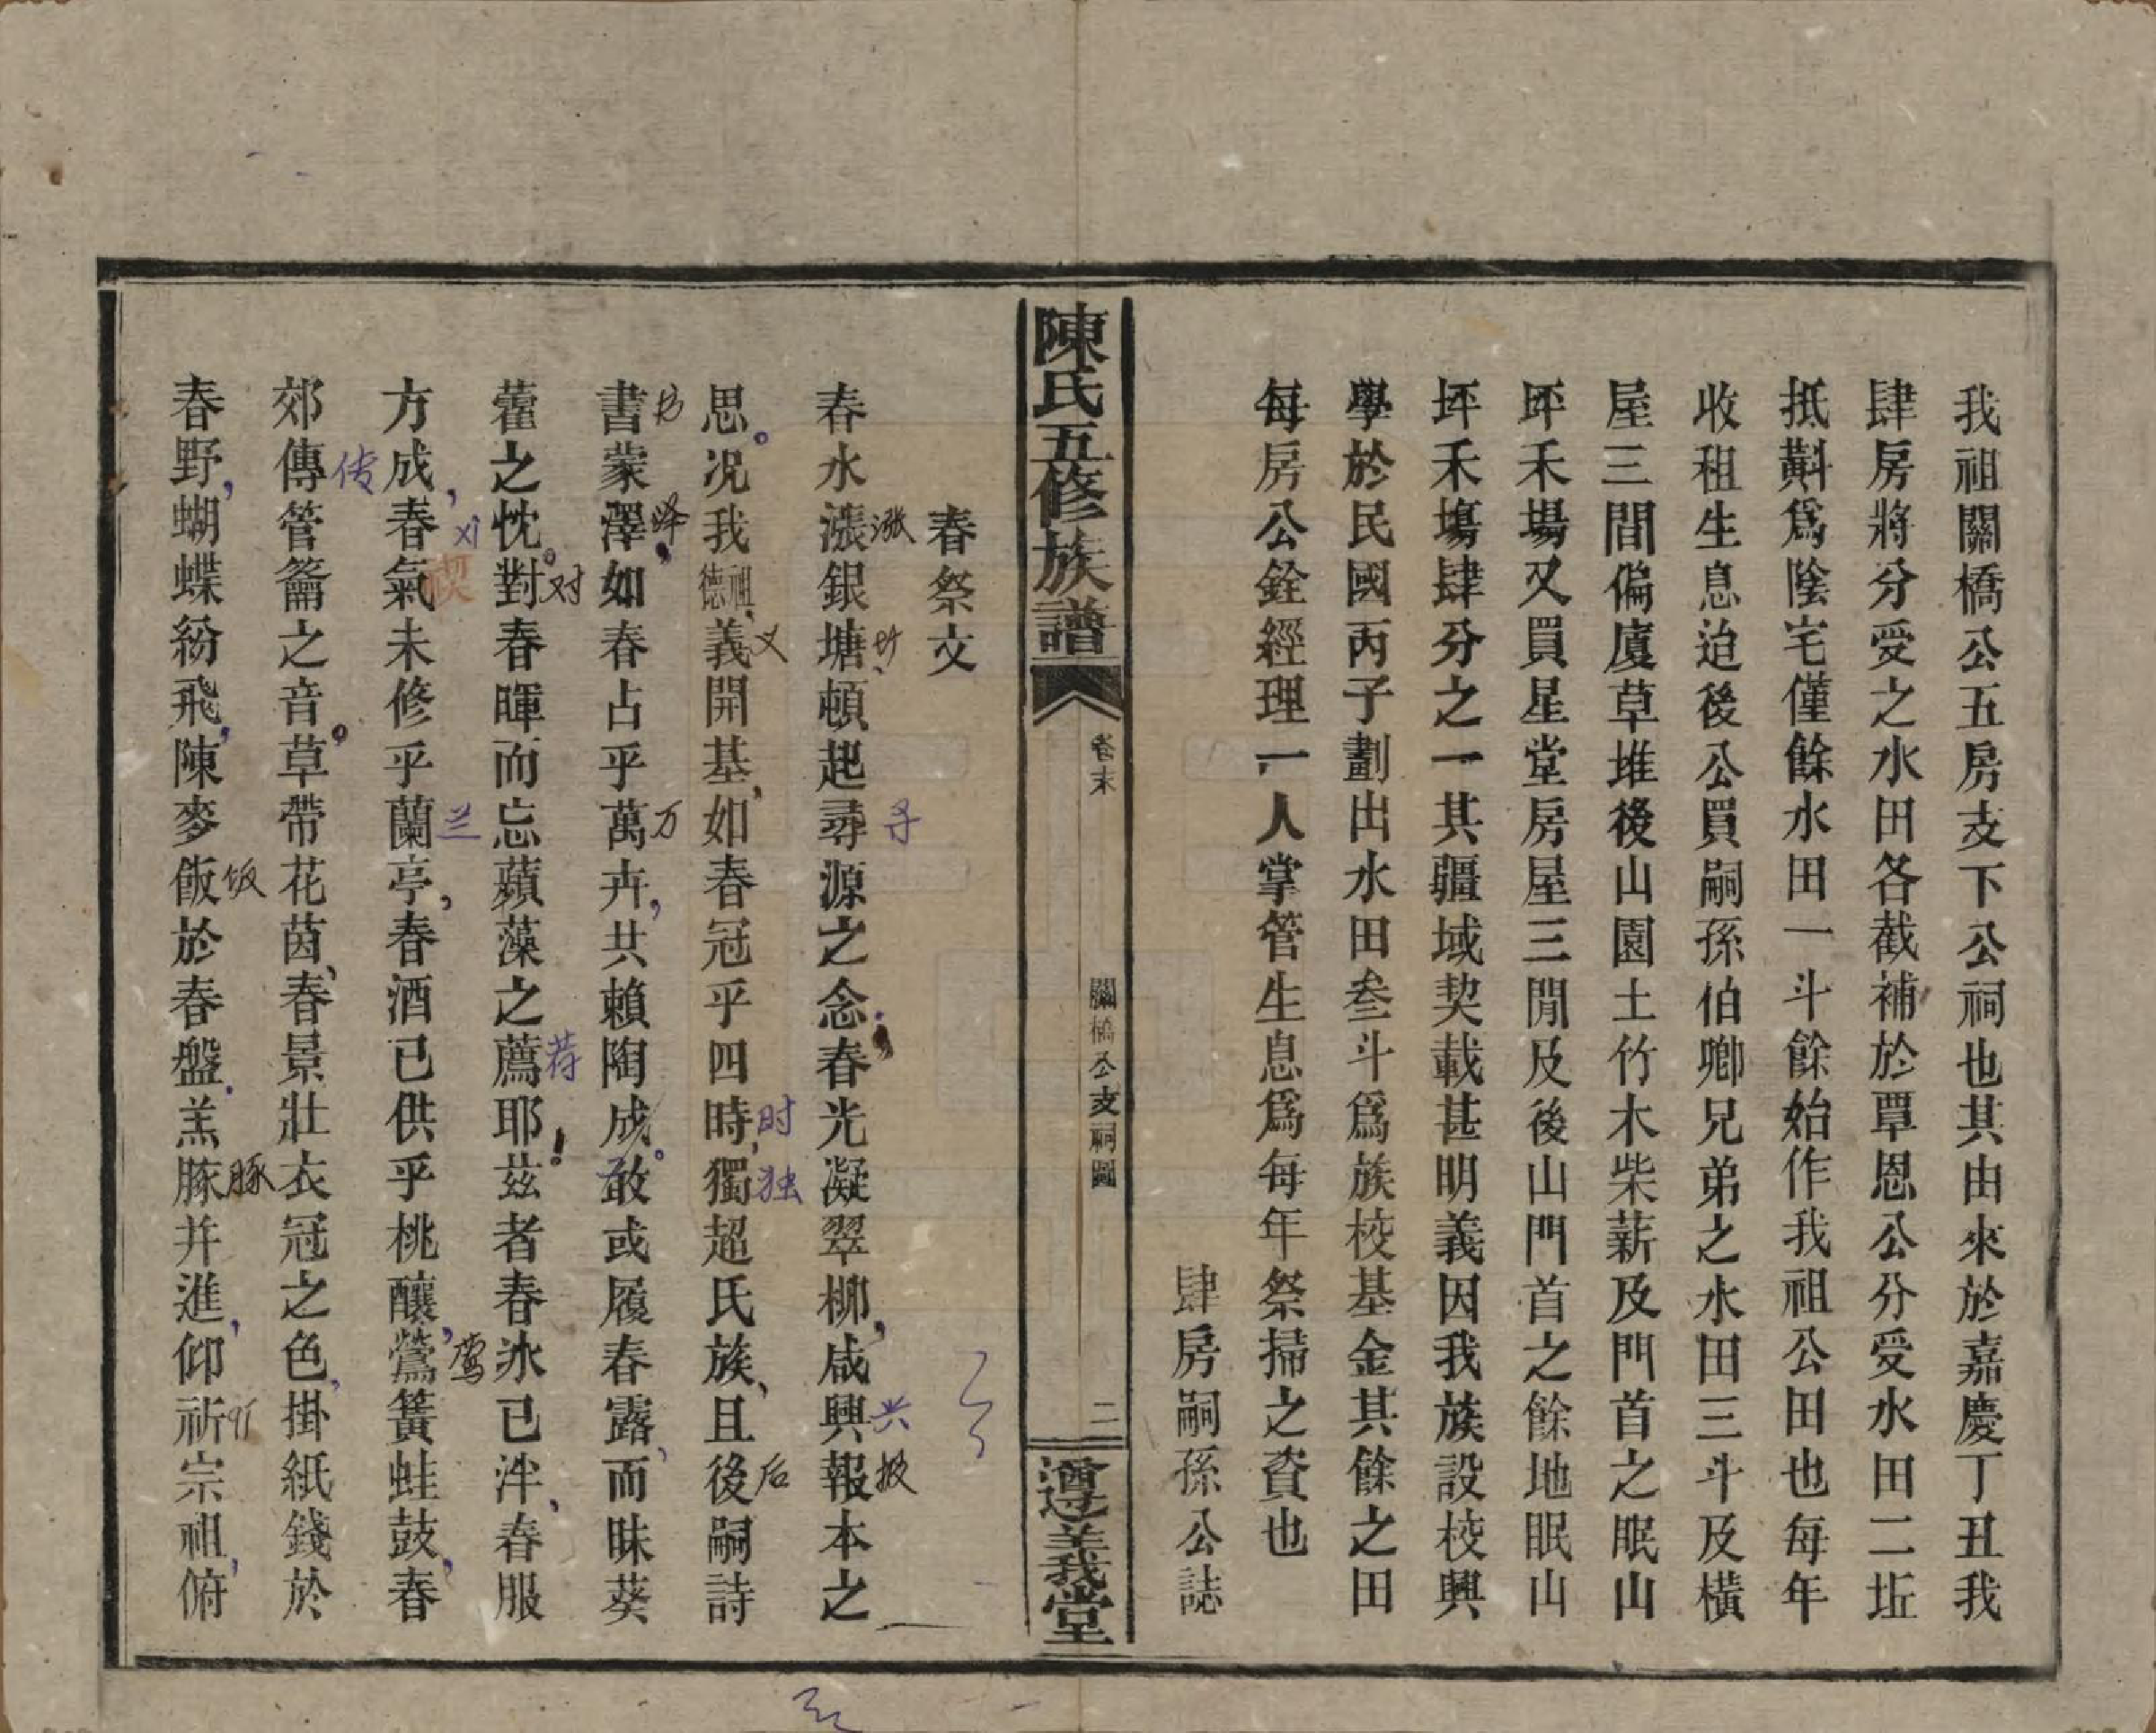 我祖關橋公五房支下公祠也其由來於嘉慶丁丑我
肆房將分受之水田各截補於覃恩公分受水田二坵
抵斢爲陰宅僅餘水田一斗餘始作我祖公田也每年
收租生息迨後公買嗣孫伯卿兄弟之水田三斗及橫
屋三間偏廈草堆後山園土竹木柴薪及門首之眠山
坪禾場又買星堂房屋三間及後山門首之餘地眠山
坪禾塲肆分之一其疆域契載甚明義因我族設校興
學於民國丙子劃出水田叁斗爲族校基金其餘之田
每房公銓經理一人掌管生息爲每年祭掃之資也
肆房嗣孫公誌
陳氏五修族譜
卷末
關橋公支祠圖
二
義堂
春祭文
春水漲銀塘頓起尋源之念春光凝翠柳咸興報本之
思况我祖德義開基如春冠乎四時獨超氏族且後嗣詩
書蒙澤如春占乎萬卉共賴陶成敢或履春露而昧葵
藿之忱對春暉而忘蘋藻之薦耶茲者春氷已泮春服
方成春氣未修乎蘭亭春酒已供乎桃釀鶯簧蛙鼓春
郊傳管籥之音草帶花茵春景壯衣冠之色掛紙錢於
春野蝴蝶紛飛陳麥飯於春盤羔豚并進仰祈宗祖俯
涨
寻
兴
报
义
时
独
后
泽
万
对
荐
刈
禊
兰
莺
传
饭
豚